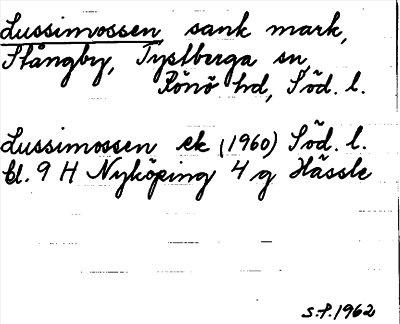 Lussimossen, sank mark,
Stångby, Tystberga sn,
Rönö hd, Söd. l.
Lussimossen ek (1960) Söd. l.
bl. 9 H Nyköping 4 g Hässle
S.P. 1962